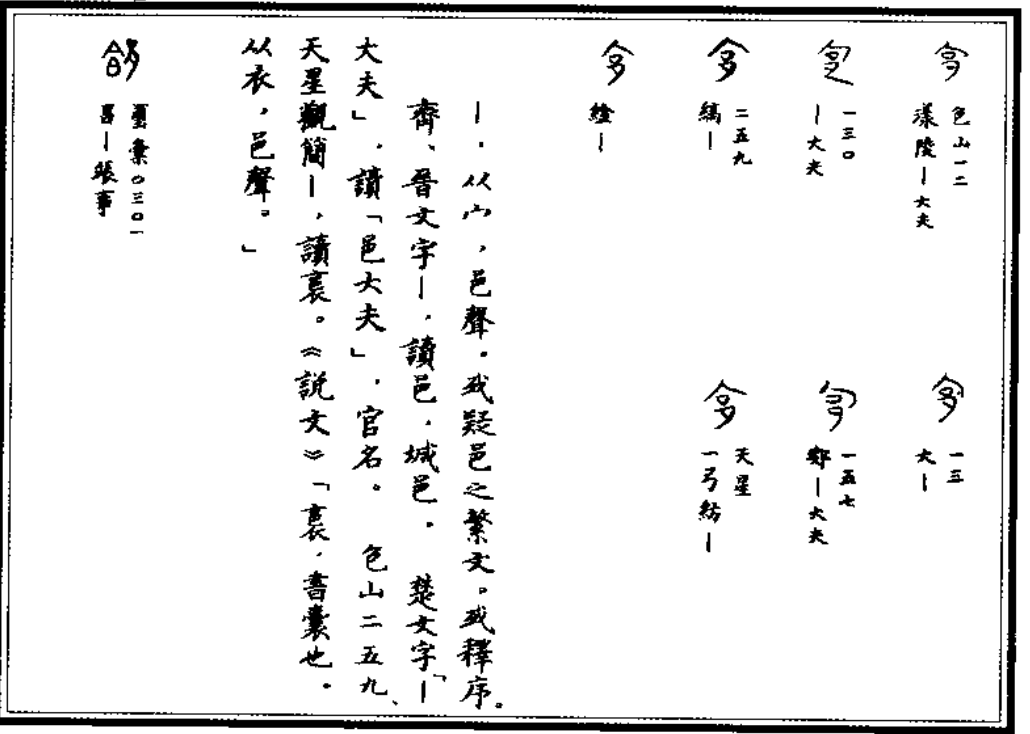 包山一二
漾陵—大夫
一三
大—
一三〇
—大夫
一五七
—大夫
二五九
縞—
天星
一弓紡—
—
—，从宀，邑聲。或疑邑之繁文。或釋序。
齊、晉文字—，讀邑，城邑。 楚文字「—
大夫」，讀「邑大夫」，官名。 包山二五九、
天星觀簡—，讀裛。《說文》「裛，書囊也。
从衣，邑聲。」
璽彙〇三〇一
—事